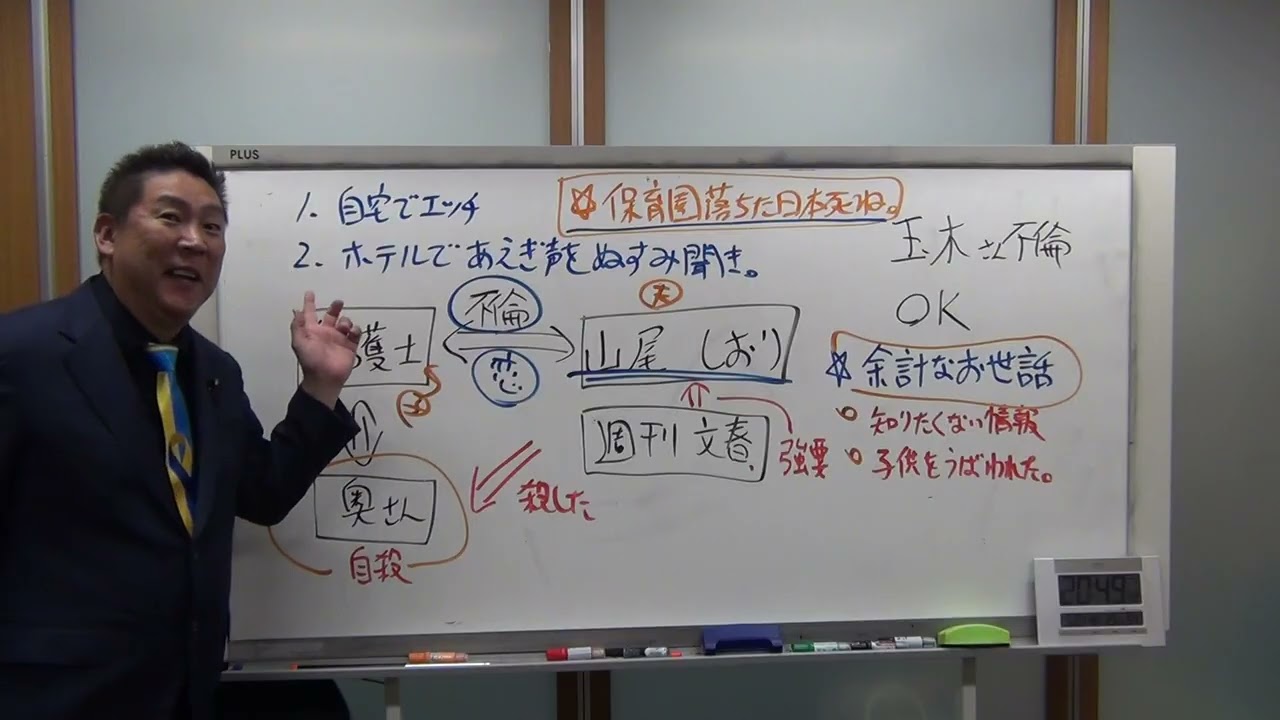 PLUS
1. 自宅でエッチ
2. ホテルであえぎ声をぬすみ聞き。
☆保育園落ちた日本死ね。
玉木さん不倫
OK
不倫
恋
護士
山尾 しおり
週刊文春
強要
☆余計なお世話
知りたくない情報
子供をうばわれた。
殺した
奥さん
自殺
20:49